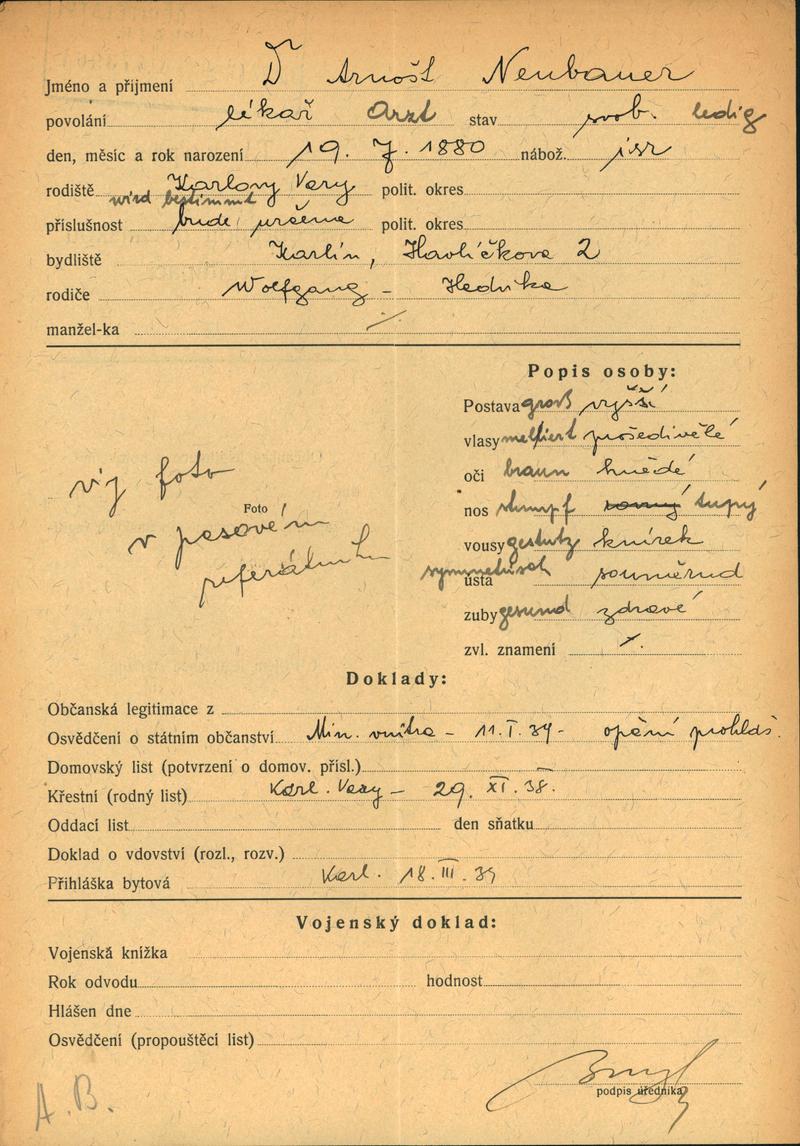 Jméno a přijmení Dr Arnošt Neubauer
povolání lékař Arzt stav svob. ledig
den, měsíc a rok narození 19. 7. 1880 nábož. isr
rodiště Karlovy Vary polit. okres
wird bestimmt
příslušnost bude určena polit. okres
bydliště Karlín, Havlíčkova 2
rodiče Wolfgang - Hedvika
manžel-ka /
Popis osoby:
Postava groß vyšší
vlasy meliert prošedivělé
oči braun hnědé
nos stumpf rovný tupý
vousy gestutz knírek
symmetrisch
ústa souměrná
zuby gesund zdravé
zvl. znamení /.
viz foto
Foto
v pasovém
referátu
Doklady:
Občanská legitimace z
Osvědčení o státním občanství Min. vnitra - 11. I. 39 - opční prohláš.
Domovský list (potvrzení o domov. přísl.)
Křestní (rodný list) Karl. Vary - 29. XI. 38.
Oddací list den sňatku
Doklad o vdovství (rozl., rozv.)
Přihláška bytová Karl. 18. III. 39
Vojenský doklad:
Vojenská knížka
Rok odvodu hodnost
Hlášen dne
Osvědčení (propouštěcí list)
podpis úředníka
A. B.